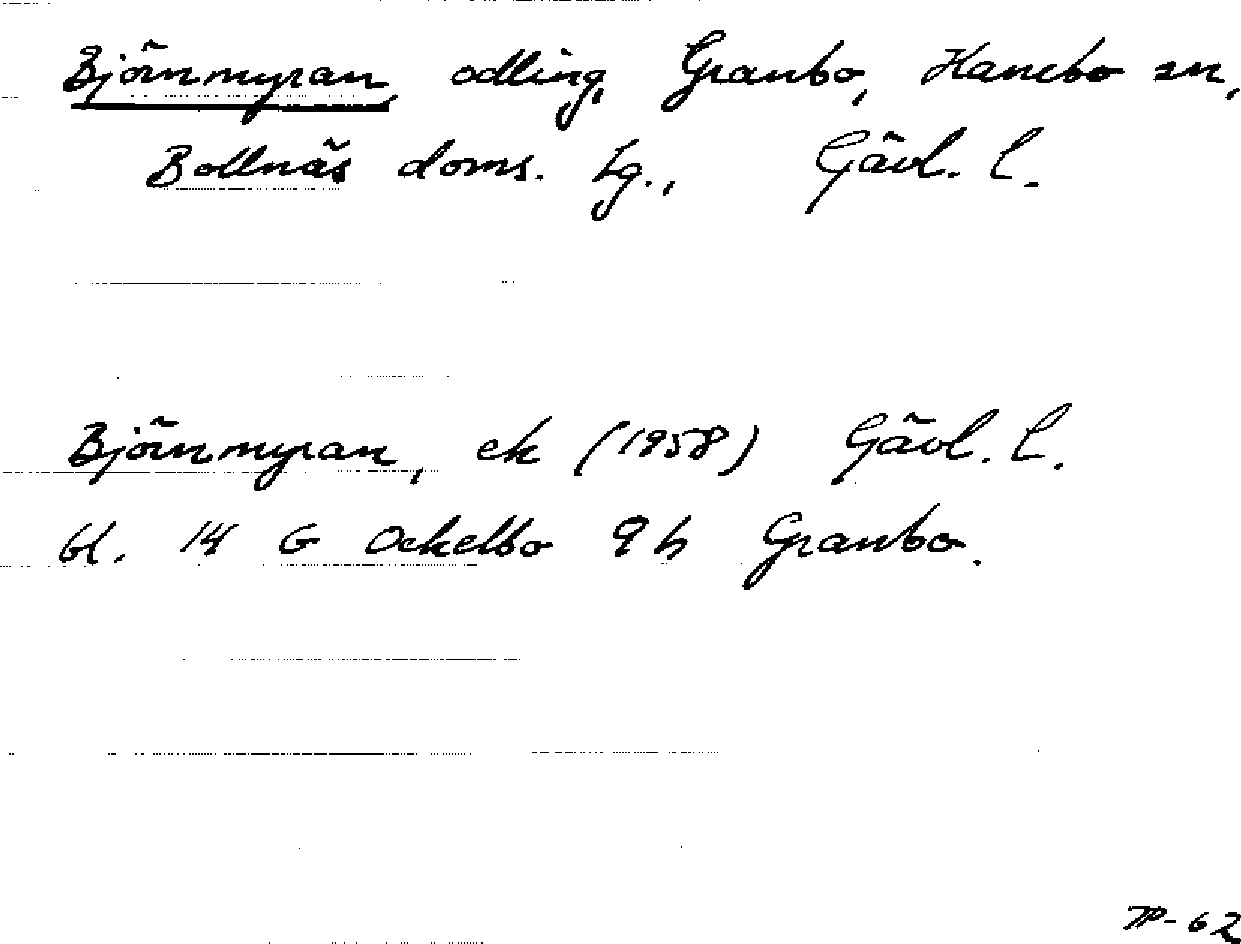 Björnmyran, odling, Granbo, Hanebo sn,
Bollnäs doms. tg., Gävl. l.
Björnmyran, ek (1958) Gävl. l.
bl. 14 G Ockelbo 9 h Granbo.
TP-62